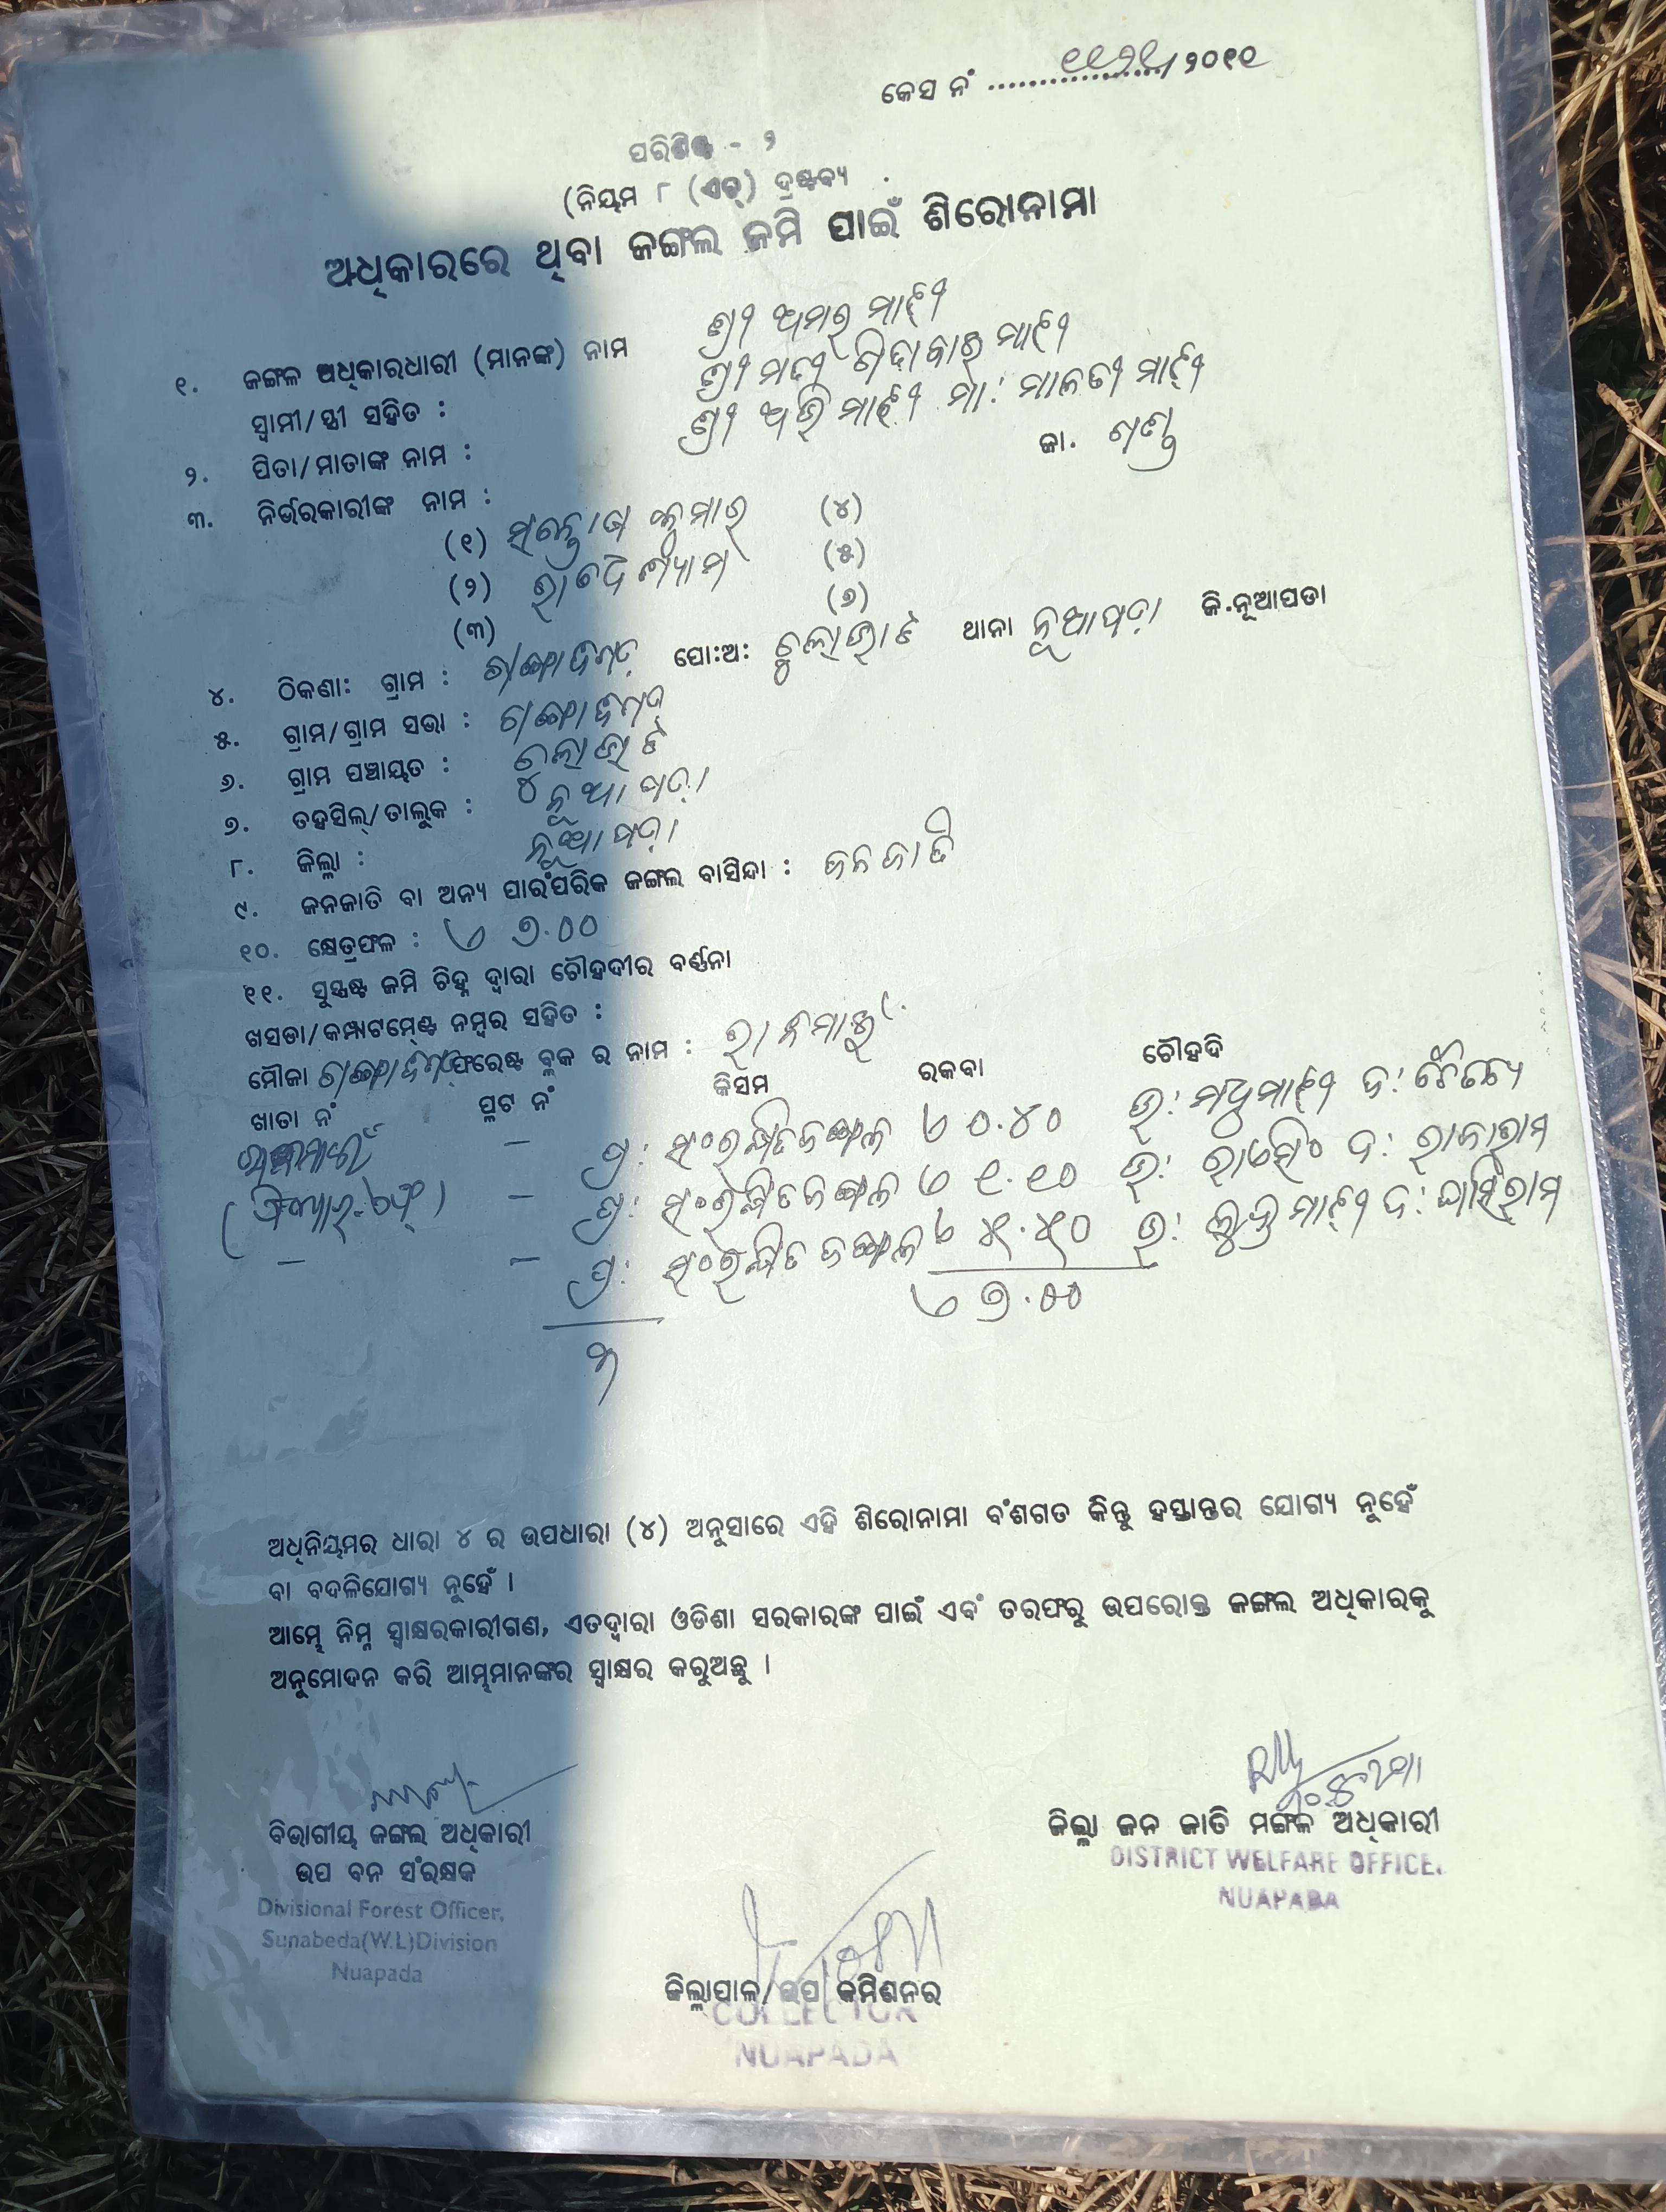 କେସ ନଂ ୧୧୨୧/୨୦୧୧
ପରିଶିଷ୍ଟ - ୨
(ନିୟମ ୮ (ଏଚ୍) ଦ୍ରଷ୍ଟବ୍ୟ
ଅଧିକାରରେ ଥିବା ଜଙ୍ଗଲ ଜମି ପାଇଁ ଶିରୋନାମା
୧. ଜଙ୍ଗଳ ଅଧିକାରଧାରୀ (ମାନଙ୍କ) ନାମ ଶ୍ରୀ ଅମର ମାଝୀ
ସ୍ୱାମୀ/ସ୍ତ୍ରୀ ସହିତ : ଶ୍ରୀମତୀ ଗିଦାବାଇ ମାଝୀ
୨. ପିତା/ମାତାଙ୍କ ନାମ : ଶ୍ରୀ ଅଭି ମାଝୀ ମା: ମାଳତୀ ମାଝୀ
ଜା. ଗଣ୍ଡ
୩. ନିର୍ଭରକାରୀଙ୍କ ନାମ :
(୧) ସନ୍ତୋଷ କୁମାର (୪)
(୨) ରାଧେଶ୍ୟାମ (୫)
(୩) (୬)
୪. ଠିକଣା: ଗ୍ରାମ : ପୋ:ଅ: ଥାନା ନୂଆପଡ଼ା ଜି.ନୂଆପଡା
୫. ଗ୍ରାମ/ଗ୍ରାମ ସଭା :
୬. ଗ୍ରାମ ପଞ୍ଚାୟତ :
୭. ତହସିଲ୍/ତାଲୁକ : ନୂଆପଡ଼ା
୮. ଜିଲ୍ଲା : ନୂଆପଡ଼ା
୯. ଜନଜାତି ବା ଅନ୍ୟ ପାରଂପରିକ ଜଙ୍ଗଲ ବାସିନ୍ଦା : ଜନଜାତି
୧୦. କ୍ଷେତ୍ରଫଳ : ୭.୦୦
୧୧. ସୁସ୍ପଷ୍ଟ ଜମି ଚିହ୍ନ ଦ୍ୱାରା ଚୌହଦୀର ବର୍ଣ୍ଣନା
ଖସଡା/କମ୍ପାଟମେଣ୍ଟ ନମ୍ବର ସହିତ :
ମୌଜା ଫରେଷ୍ଟ ବ୍ଲକ ର ନାମ :
ଖାତା ନଂ ପ୍ଲଟ ନଂ କିସମ ରକବା ଚୌହଦି
– ପ୍ର: ସଂରକ୍ଷିତ ଜଙ୍ଗଳ ୦.୪୦ ଉ: ମଧୁ ମାଝୀ ଦ: ଚୈତନ୍ୟ
– ପ୍ର: ସଂରକ୍ଷିତ ଜଙ୍ଗଳ ୧.୧୦ ଉ: ରାଏସିଂ ଦ: ରାଜାରାମ
– – ପ୍ର: ସଂରକ୍ଷିତ ଜଙ୍ଗଳ ୫.୫୦ ଉ: ମାଝୀ ଦ: ଘାସିରାମ
୩ ୭.୦୦
ଅଧିନିୟମର ଧାରା ୪ ର ଉପଧାରା (୪) ଅନୁସାରେ ଏହି ଶିରୋନାମା ବଂଶଗତ କିନ୍ତୁ ହସ୍ତାନ୍ତର ଯୋଗ୍ୟ ନୁହେଁ
ବା ବଦଳିଯୋଗ୍ୟ ନୁହେଁ ।
ଆମ୍ଭେ ନିମ୍ନ ସ୍ୱାକ୍ଷରକାରୀଗଣ, ଏତଦ୍ୱାରା ଓଡିଶା ସରକାରଙ୍କ ପାଇଁ ଏବଂ ତରଫରୁ ଉପରୋକ୍ତ ଜଙ୍ଗଲ ଅଧିକାରକୁ
ଅନୁମୋଦନ କରି ଆମ୍ଭମାନଙ୍କର ସ୍ୱାକ୍ଷର କରୁଅଛୁ ।
ବିଭାଗୀୟ ଜଙ୍ଗଲ ଅଧିକାରୀ
ଉପ ବନ ସଂରକ୍ଷକ
Divisional Forest Officer,
Sunabeda(W.L)Division
Nuapada
ଜିଲ୍ଲା ଜନ ଜାତି ମଙ୍ଗଳ ଅଧିକାରୀ
DISTRICT WELFARE OFFICE.
NUAPADA
ଜିଲ୍ଲାପାଳ/ଉପ କମିଶନର
COLLECTOR
NUAPADA